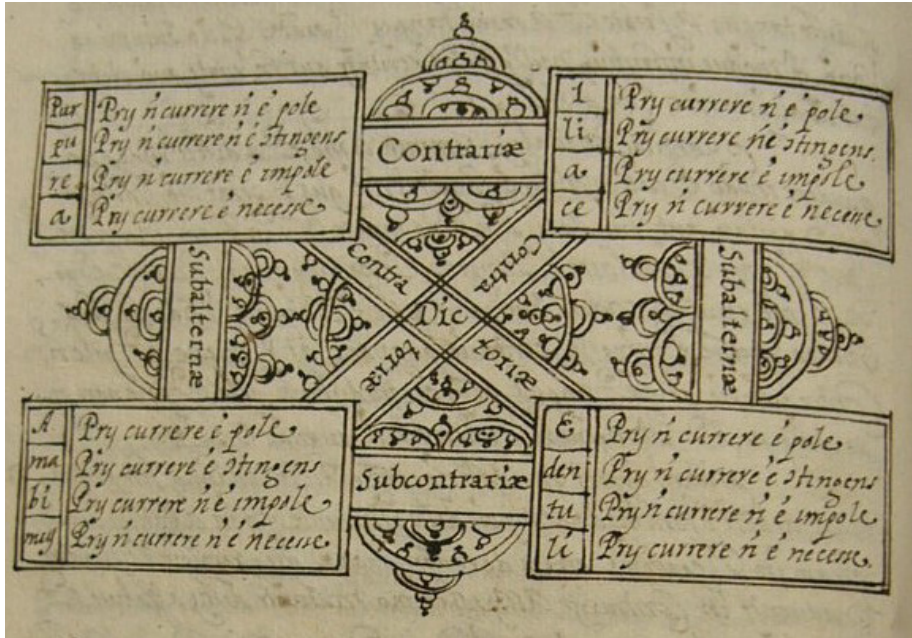 Pur Pry ń currere ń é pole
pu Pry ń currere ń é ↄtingens
re Pry ń currere é impole
a Pry currere é necesse
Contrariæ
I Pry currere ń é pole
li Pry currere ń é ↄtingens.
a Pry currere é impole
ce Pry ń currere é necesse
Subalternæ
Contra
Contra
Dic
toriæ
toriæ
Subalternæ
A Pry currere é pole
ma Pry currere é ↄtingens
bi Pry currere ń é impole
mus Pry ń currere ń é necesse
Subcontrariæ
E Pry ń currere é pole
den Pry ń currere é ↄtingens
tu Pry ń currere ń é impole
li Pry currere ń é necesse